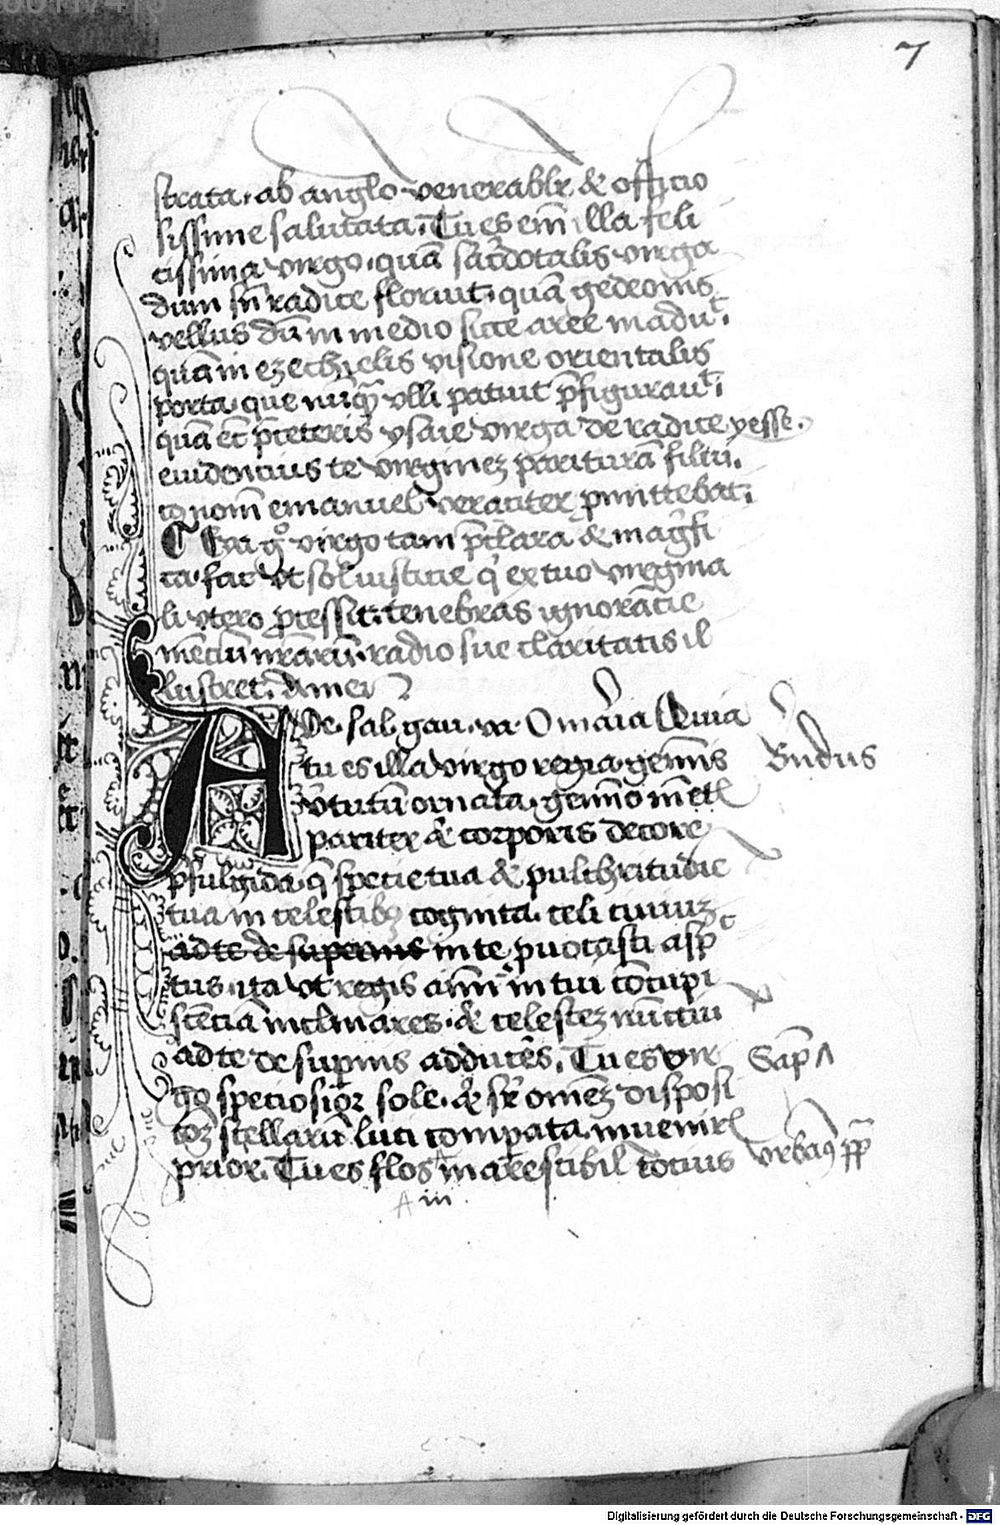 7
strata. ab anglo venerabilr & officio
sissime salutata. Tu es em̄ illa feli
cissima virgo. quā sac̄dotalis virga
dum sn̄ radice floruit. quā gedeonis
vellus dū in medio sicce aree maduᵗ.
quā in ezechielis visione orientalis
porta. que nūqͣ vlli patuit p̄figurauᵗ.
quā et̄ p̄ceteris ysaie virga de radice yesse.
euidencius te virginez parituraꝫ filiū.
cū noīe emanuel veraciter ꝓmittebat.
Eya gͦ virgo tam p̄clara & mag̃fi
ca. fac vt sol iusticie qͥ ex tuo virgina
li vtero ꝓcessit. tenebras ignorācie
mēciū nr̄arū. radio sue claritatis il
lustret. Amen
Ade. sal. gau. va. O maͬia Quia
tu es illa virgo regia gem̄is Bn̄dus
v̓tutū ornata. gemīo mētꝭ
pariter & corporis decore
p̄fulgida. qͥ specie tua & pulchritudīe
tua in celestibꝫ cognita. celi ciuiuꝫ
ad te de supernis in te ꝓuocasti aspc̄
tus. ita vt regis aīm in tui cōcupi
scēciā inclinares. & celestez nūctiū
ad te de supernis adducēs. Tu es vir Sapͣ
go speciosior sole. & sr̄ omēz disposi
cōꝫ stellarū. luci compata. inuenirꝭ
prior. Tu es flos ĩmarcescibil tocius vrbanꝯ pp̄
in
Digitalisierung gefördert durch die Deutsche Forschungsgemeinschaft - DFG